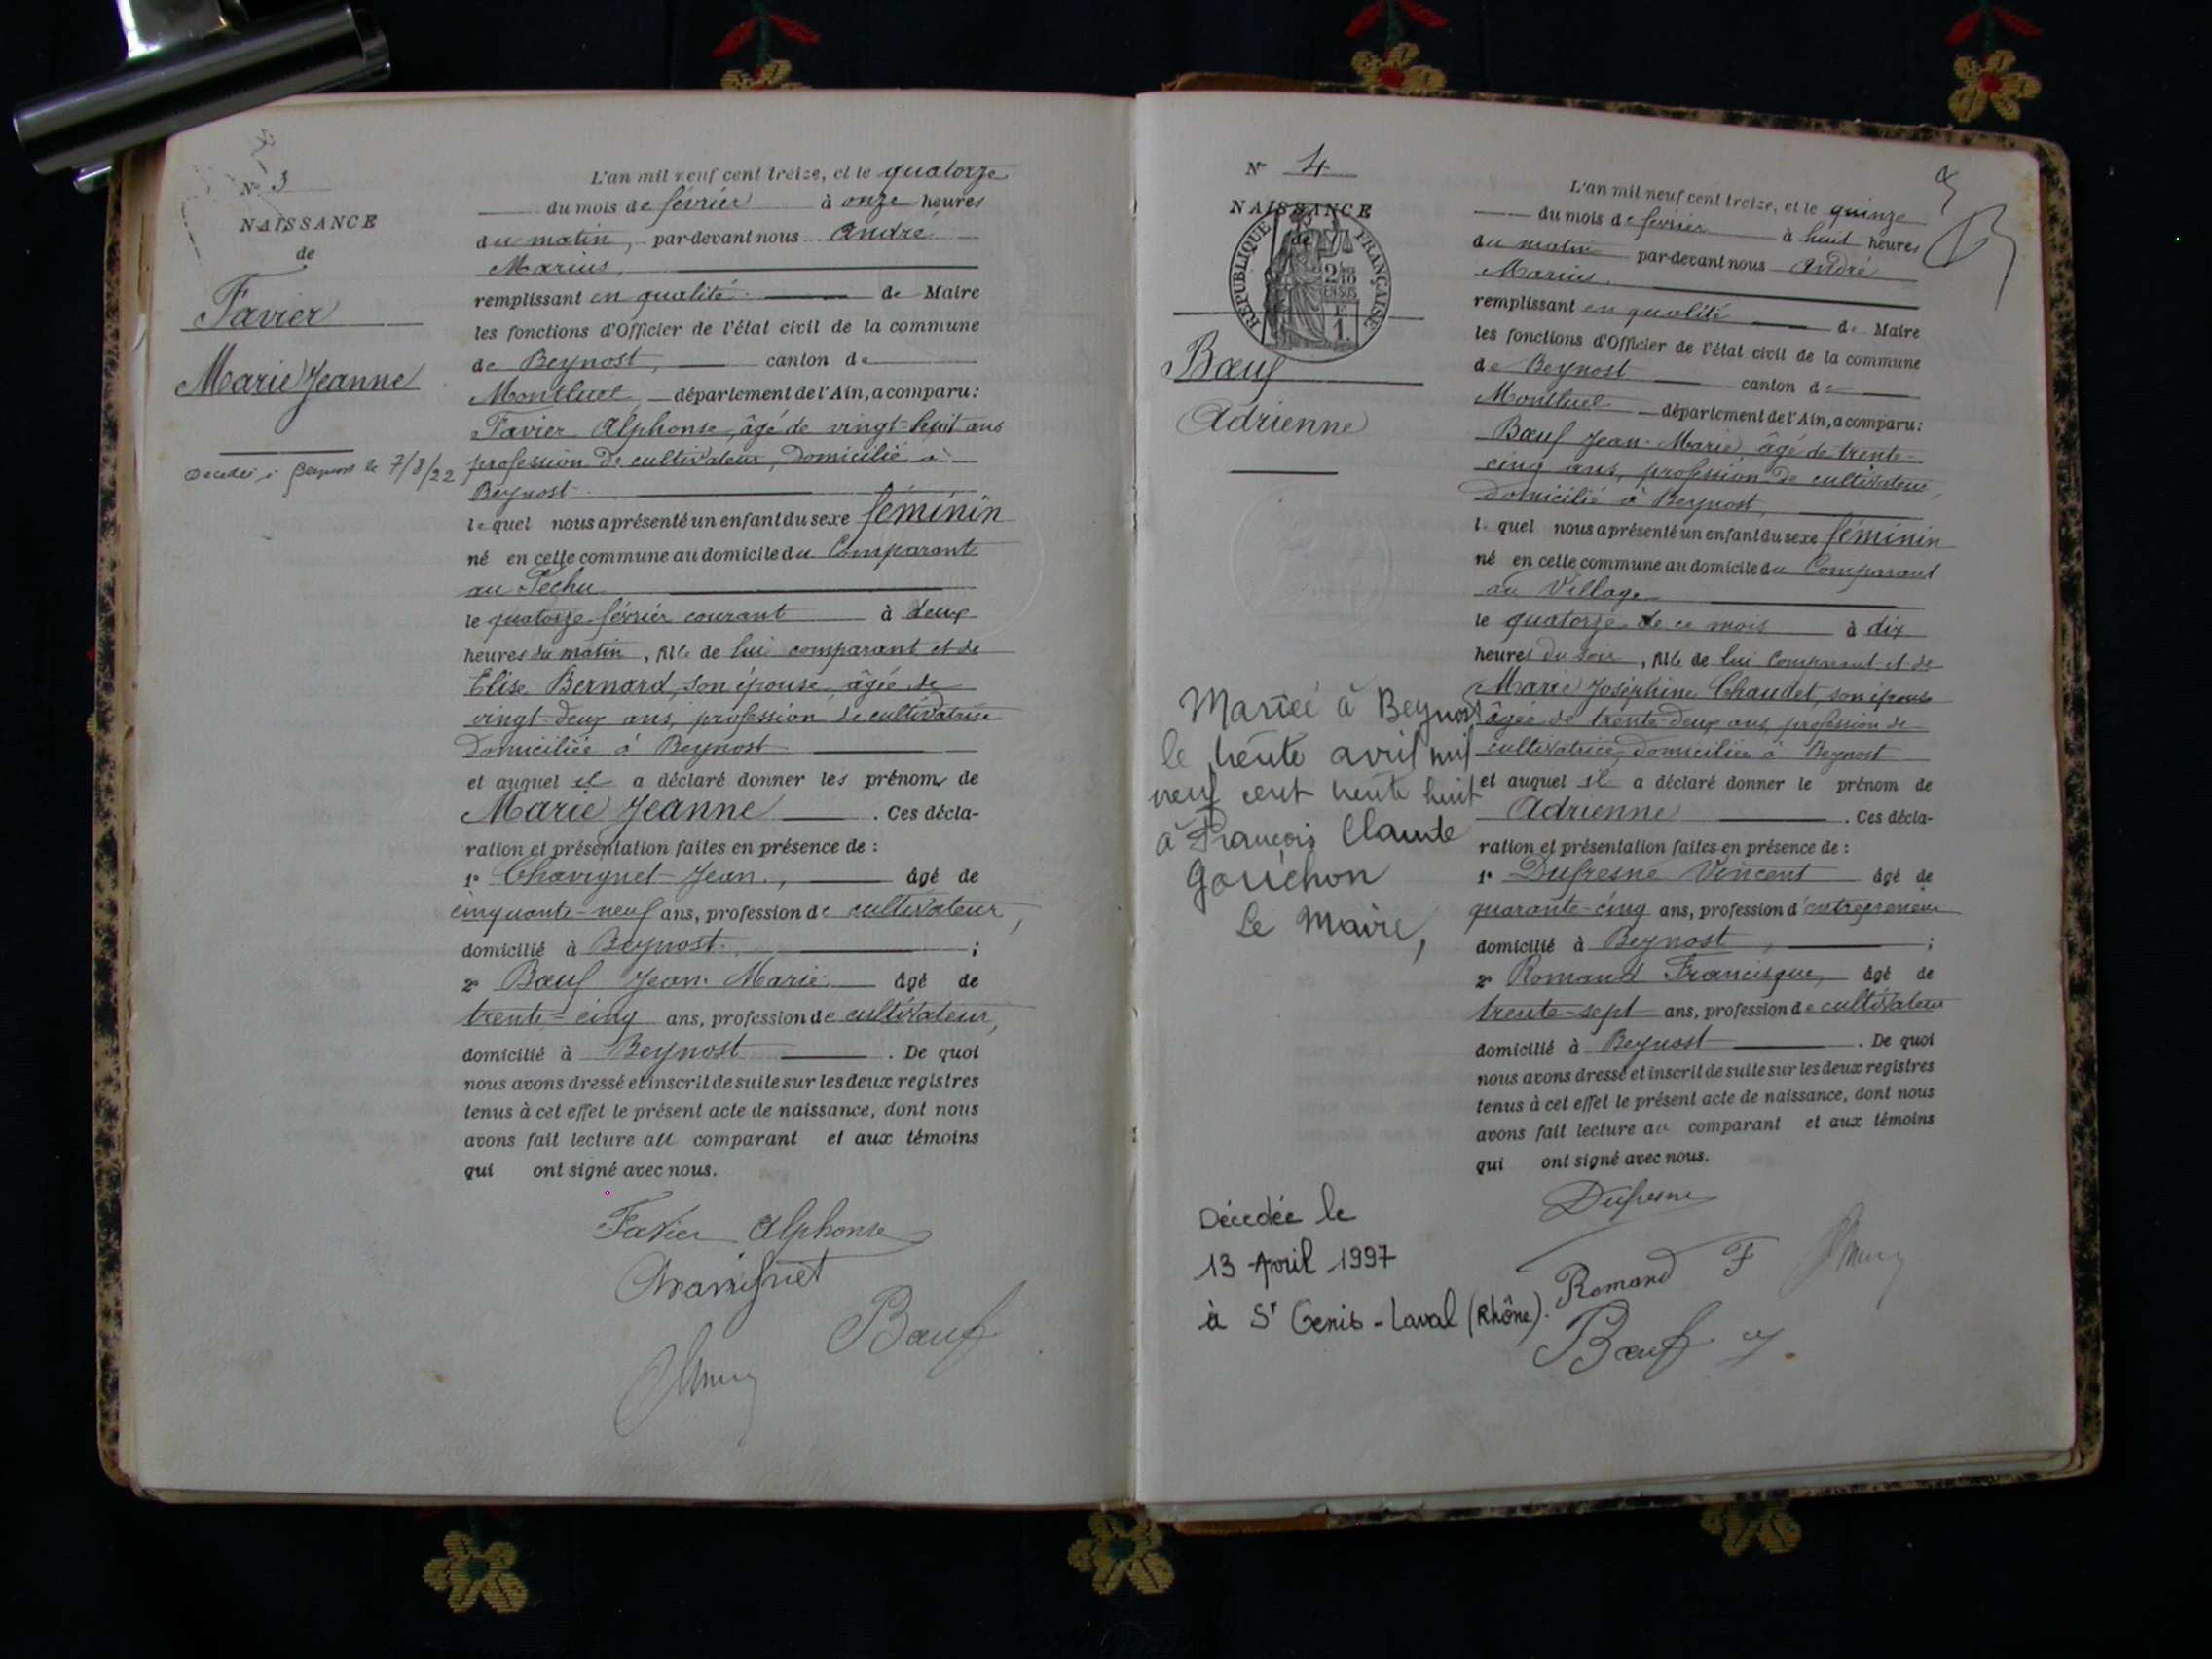 N° 3
NAISSANCE
de
Favier
Marie Jeanne
Décédée à Beynost le 7/8/22
L'an mil neuf cent treize, et le quatorze
du mois de février à onze heures
du matin, par-devant nous André
Marius,
remplissant en qualité de Maire
les fonctions d'Officier de l'état civil de la commune
de Beynost, canton de
Montluel, département de l'Ain, a comparu:
Favier Alphonse, âgé de vingt-huit ans
profession de cultivateur, domicilié à
Beynost
lequel nous a présenté un enfant du sexe féminin
né en cette commune au domicile du Comparant
au Péchu
le quatorze février courant à deux
heures du matin, fille de lui comparant et de
Elise Bernard, son épouse, âgée de
vingt-deux ans, profession de cultivatrice
domiciliée à Beynost
et auquel il a déclaré donner les prénoms de
Marie Jeanne . Ces décla-
ration et présentation faites en présence de :
1° Chavignet Jean, âgé de
cinquante-neuf ans, profession de cultivateur,
domicilié à Beynost. ;
2° Bœuf Jean-Marie, âgé de
trente-cinq ans, profession de cultivateur,
domicilié à Beynost . De quoi
nous avons dressé et inscrit de suite sur les deux registres
tenus à cet effet le présent acte de naissance, dont nous
avons fait lecture au comparant et aux témoins
qui ont signé avec nous.
Favier Alphonse
Chavignet
Bœuf
N° 4
NAISSANCE
de
RÉPUBLIQUE FRANÇAISE
2/10
EN SUS
Bœuf
Adrienne
Mariée à Beynost
le trente avril mil
neuf cent trente huit
à François Claude
Gouchon
Le Maire,
Décédée le
13 Avril 1997
à St Genis-Laval (Rhône).
L'an mil neuf cent treize, et le quinze
du mois de février à huit heures
du matin par-devant nous André
Marius,
remplissant en qualité de Maire
les fonctions d'Officier de l'état civil de la commune
de Beynost canton de
Montluel département de l'Ain, a comparu:
Bœuf Jean-Marie, âgé de trente-
cinq ans, profession de cultivateur,
domicilié à Beynost,
lequel nous a présenté un enfant du sexe féminin
né en cette commune au domicile du Comparant
au Village
le quatorze de ce mois à dix
heures du soir, fille de lui Comparant et de
Marie Joséphine Chaudet, son épouse
âgée de trente-deux ans, profession de
cultivatrice, domiciliée à Beynost
et auquel il a déclaré donner le prénom de
Adrienne . Ces décla-
ration et présentation faites en présence de :
1° Dufresne Vincent âgé de
quarante-cinq ans, profession d'entrepreneur
domicilié à Beynost, ;
2° Romand Francisque, âgé de
trente-sept ans, profession de cultivateur
domicilié à Beynost . De quoi
nous avons dressé et inscrit de suite sur les deux registres
tenus à cet effet le présent acte de naissance, dont nous
avons fait lecture au comparant et aux témoins
qui ont signé avec nous.
Dufresne
Romand F
Bœuf J.